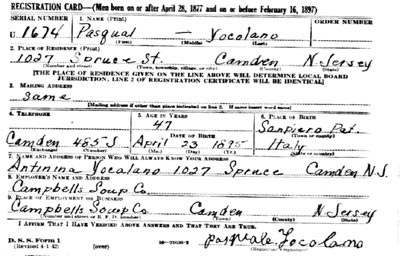 REGISTRATION CARD—(Men born on or after April 28, 1877 and on or before February 16, 1897)
SERIAL NUMBER 1. NAME (Print) ORDER NUMBER
U. 1674 Pasqual — Vocolano
(First) (Middle) (Last)
2. PLACE OF RESIDENCE (Print)
1027 Spruce St. Camden N. Jersey
(Number and street) (Town, township, village, or city) (County) (State)
[THE PLACE OF RESIDENCE GIVEN ON THE LINE ABOVE WILL DETERMINE LOCAL BOARD
JURISDICTION; LINE 2 OF REGISTRATION CERTIFICATE WILL BE IDENTICAL]
3. MAILING ADDRESS
same
[Mailing address if other than place indicated on line 2. If same insert word same]
4. TELEPHONE 5. AGE IN YEARS 6. PLACE OF BIRTH
47 Sanpiero Pat.
DATE OF BIRTH (Town or county)
Camden 485J April 23 1895 Italy
(Exchange) (Number) (Mo.) (Day) (Yr.) (State or country)
7. NAME AND ADDRESS OF PERSON WHO WILL ALWAYS KNOW YOUR ADDRESS
Antinina Vocalano 1027 Spruce Camden N.J.
8. EMPLOYER'S NAME AND ADDRESS
Campbells Soup Co
9. PLACE OF EMPLOYMENT OR BUSINESS
Campbells Soup Co. Camden N. Jersey
(Number and street or R. F. D. number) (Town) (County) (State)
I AFFIRM THAT I HAVE VERIFIED ABOVE ANSWERS AND THAT THEY ARE TRUE.
D. S. S. Form 1
(Revised 4-1-42) (over) Pasquale Vocolano